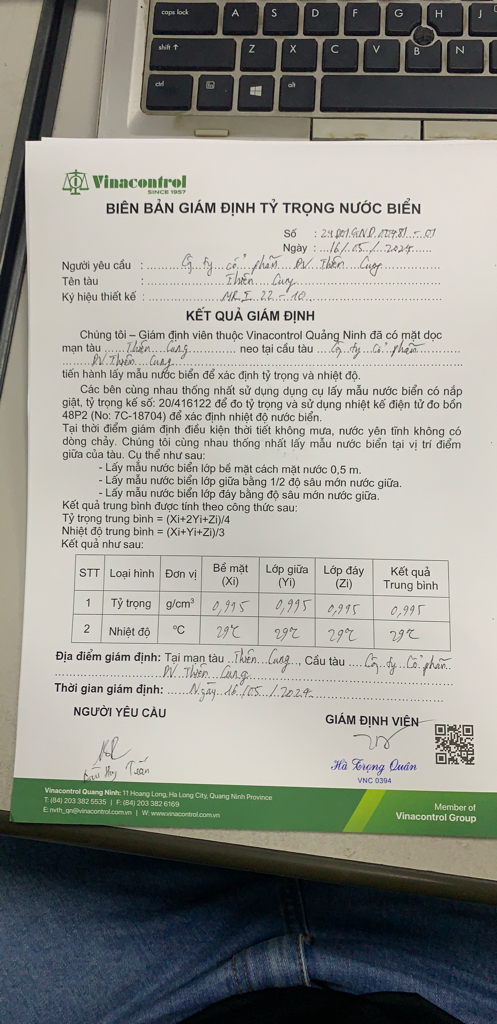 caps lock A S D F G H J
shift ↑ Z X C V B N
ctrl alt
Vinacontrol
SINCE 1957
BIÊN BẢN GIÁM ĐỊNH TỶ TRỌNG NƯỚC BIỂN
Số :
Ngày : 16/05/2024
Người yêu cầu : Cty cổ phần DV. Thiên Cung
Tên tàu : Thiên Cung
Ký hiệu thiết kế : 22 - 10
KẾT QUẢ GIÁM ĐỊNH
Chúng tôi – Giám định viên thuộc Vinacontrol Quảng Ninh đã có mặt dọc
mạn tàu Thiên Cung neo tại cầu tàu Cty Cổ phần
DV. Thiên Cung
tiến hành lấy mẫu nước biển để xác định tỷ trọng và nhiệt độ.
Các bên cùng nhau thống nhất sử dụng dụng cụ lấy mẫu nước biển có nắp
giật, tỷ trọng kế số: 20/416122 để đo tỷ trọng và sử dụng nhiệt kế điện tử đo bồn
48P2 (No: 7C-18704) để xác định nhiệt độ nước biển.
Tại thời điểm giám định điều kiện thời tiết không mưa, nước yên tĩnh không có
dòng chảy. Chúng tôi cùng nhau thống nhất lấy mẫu nước biển tại vị trí điểm
giữa của tàu. Cụ thể như sau:
- Lấy mẫu nước biển lớp bề mặt cách mặt nước 0,5 m.
- Lấy mẫu nước biển lớp giữa bằng 1/2 độ sâu mớn nước giữa.
- Lấy mẫu nước biển lớp đáy bằng độ sâu mớn nước giữa.
Kết quả trung bình được tính theo công thức sau:
Tỷ trọng trung bình = (Xi+2Yi+Zi)/4
Nhiệt độ trung bình = (Xi+Yi+Zi)/3
Kết quả như sau:
STT Loại hình Đơn vị Bề mặt (Xi) Lớp giữa (Yi) Lớp đáy (Zi) Kết quả Trung bình
1 Tỷ trọng g/cm³ 0,995 0,995 0,995 0,995
2 Nhiệt độ °C 29°C 29°C 29°C 29°C
Địa điểm giám định: Tại mạn tàu Thiên Cung, Cầu tàu Cty Cổ phần
DV. Thiên Cung
Thời gian giám định: Ngày 16/05/2024
NGƯỜI YÊU CẦU GIÁM ĐỊNH VIÊN
Hà Trọng Quân
VNC 0394
Vinacontrol Quảng Ninh: 11 Hoang Long, Ha Long City, Quang Ninh Province
T: (84) 203 382 5535 | F: (84) 203 382 6169
E: nvth_qn@vinacontrol.com.vn | W: www.vinacontrol.com.vn
Member of
Vinacontrol Group